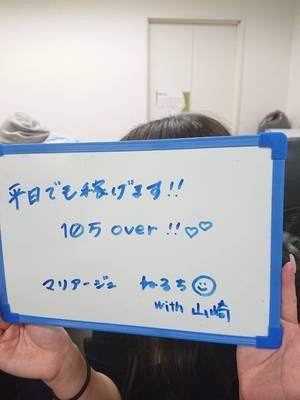 平日でも稼げます!!
10万 over !!♡♡
マリアージュ ねるち☺
with 山崎